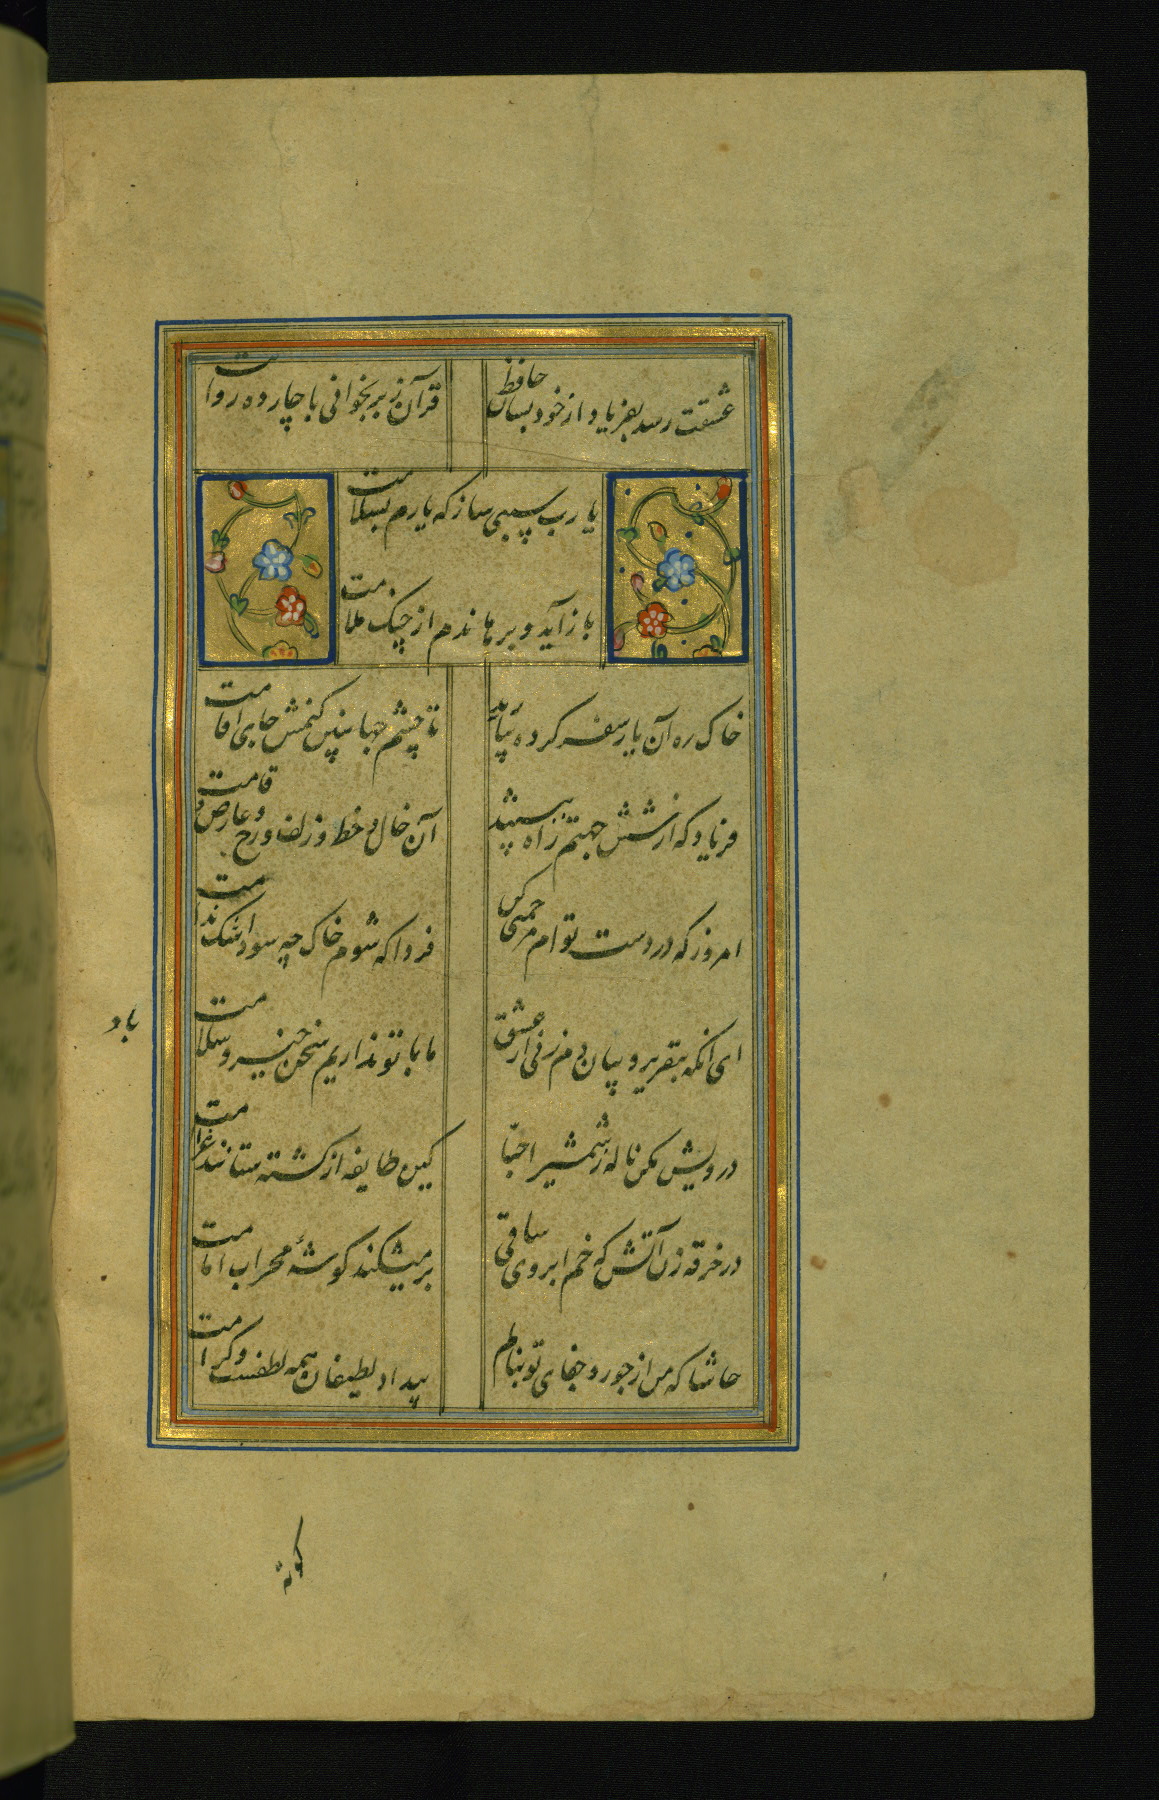 عشقت رسد بفریاد از خود بسان حافظ
قرآن ز بر بخوانی با چارده روایت
یا رب سببی ساز که یارم بسلامت
باز آید و برهاندم از چنک ملامت
خاک ره آن یار سفر کرده بیارید
تا چشم جهان بین کنمش جای اقامت
فریاد که از شش جهتم راه ببستند
آن خال و خط و زلف و رخ و عارض و قامت
امروز که در دست توام مرحمتی کن
فردا که شوم خاک چه سود اشک ندامت
ای آنکه بتقریر و بیان دم زنی از عشق
ما با تو نداریم سخن خیر و سلامت
باد
درویش مکن ناله ز شمشیر احبّا
کین طایفه از کشته ستانند غرامت
در خرقه زن آتش که خم ابروی ساقی
بر میشکند کوشهٔ محراب امامت
حاشا که من از جور و جفای تو بنالم
بیداد لطیفان همه لطفست و کرامت
کوته